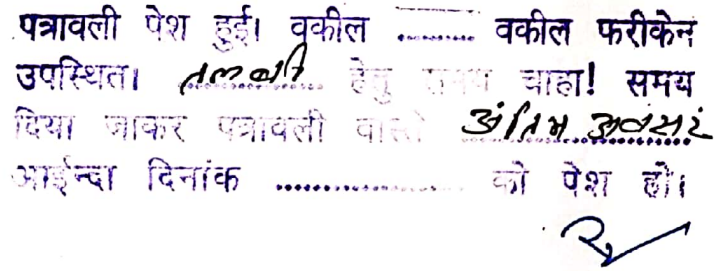 पत्रावली पेश हुई। वकील ......... वकील फरीकेन
उपस्थित। तलबी हेतु समय चाहा! समय
दिया जाकर पत्रावली वास्ते अंतिम अवसर
आईन्दा दिनांक .................... को पेश हो।